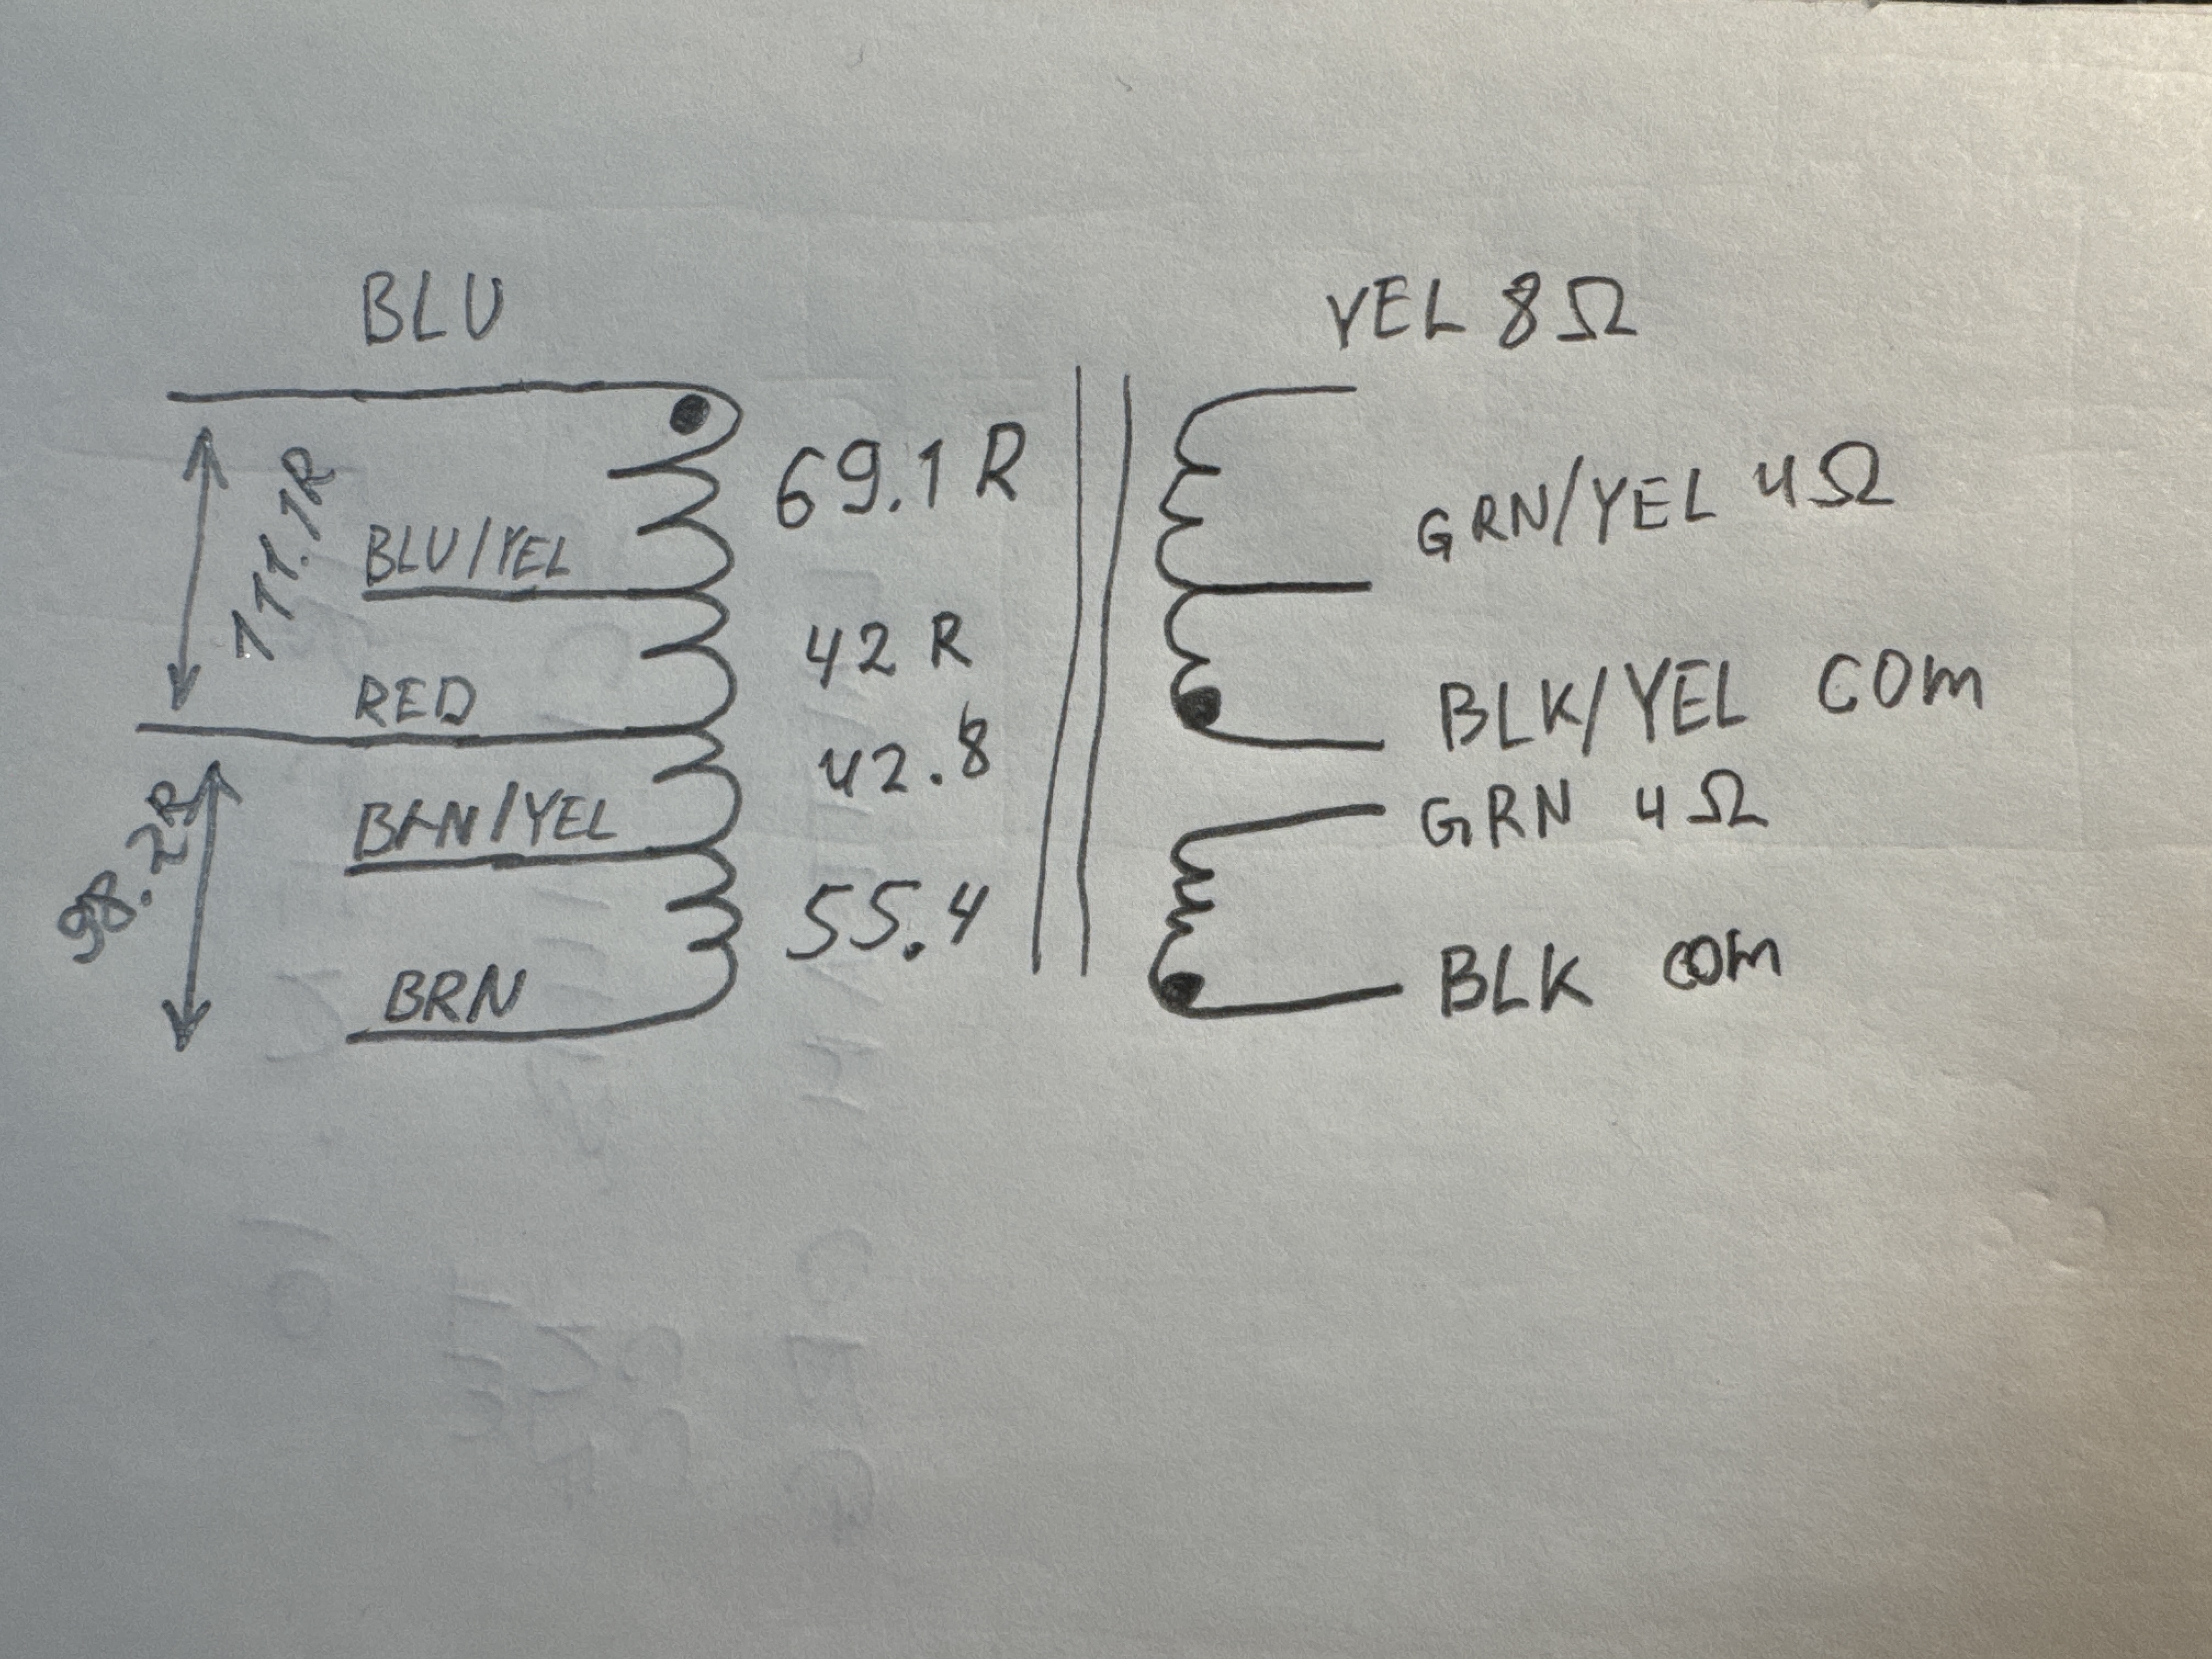 BLU
YEL 8Ω
111.1R
69.1 R
GRN/YEL 4Ω
BLU/YEL
42 R
RED
BLK/YEL COM
42.8
BRN/YEL
GRN 4Ω
98.2R
55.4
BRN
BLK COM